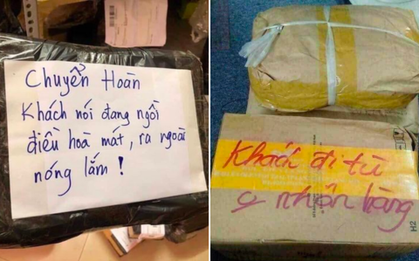 Chuyển Hoàn
Khách nói đang ngồi
điều hoà mát, ra ngoài
nóng lắm !
Khách đi tù
nhận hàng
H2